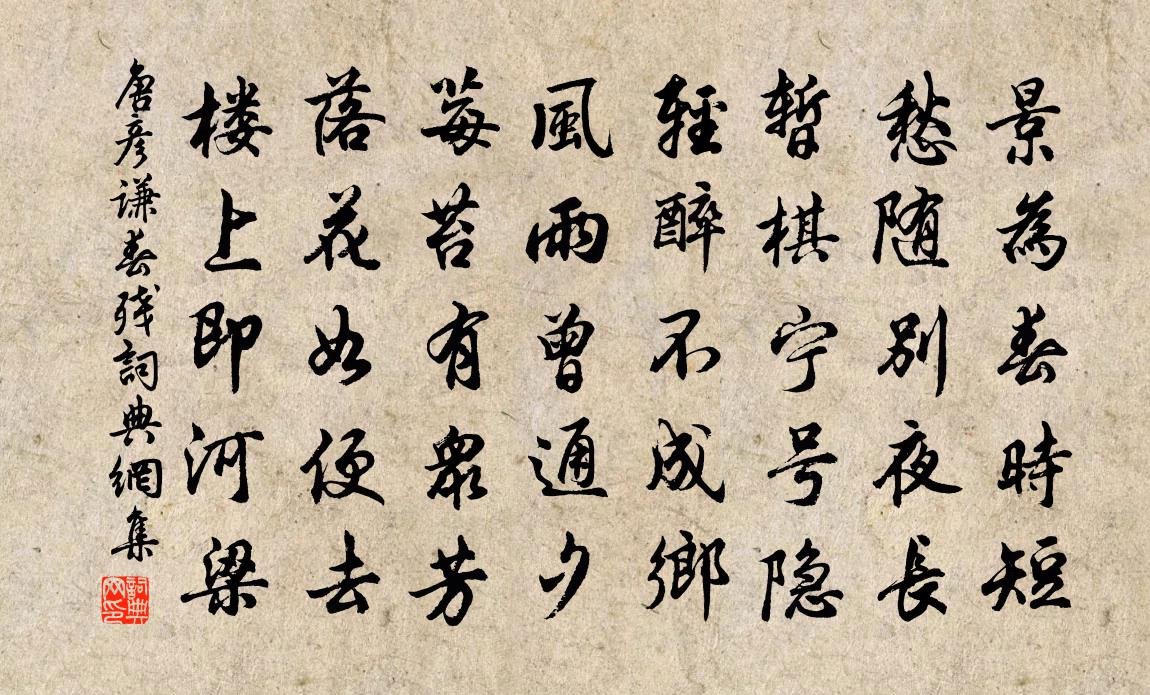 景為春時短
愁随別夜長
暫棋宁号隐
輕醉不成鄉
風雨曾通夕
莓苔有眾芳
落花如便去
楼上即河梁
唐彦谦春残詞典網集
詞典網印